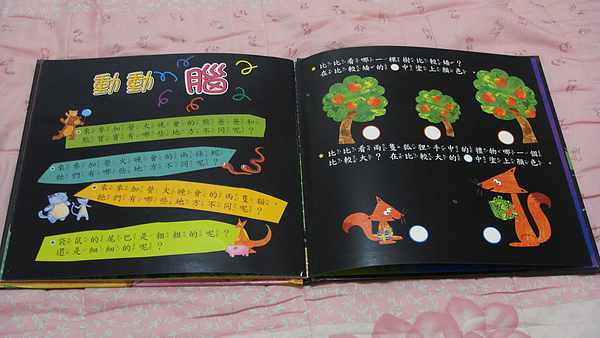 動動腦
來參加營火晚會的熊爸爸和
熊寶寶有哪些地方不同呢？
來參加營火晚會的兩條蛇，
牠們有哪些地方不同呢？
來參加營火晚會的兩隻貓，
牠們有哪些地方不同呢？
袋鼠的尾巴是粗粗的呢？
還是細細的呢？
比比看哪一棵樹比較矮？
在比較矮的○中塗上顏色。
比比看兩隻狐狸手中的禮物哪一個
比較大？在比較大的○中塗上顏色。